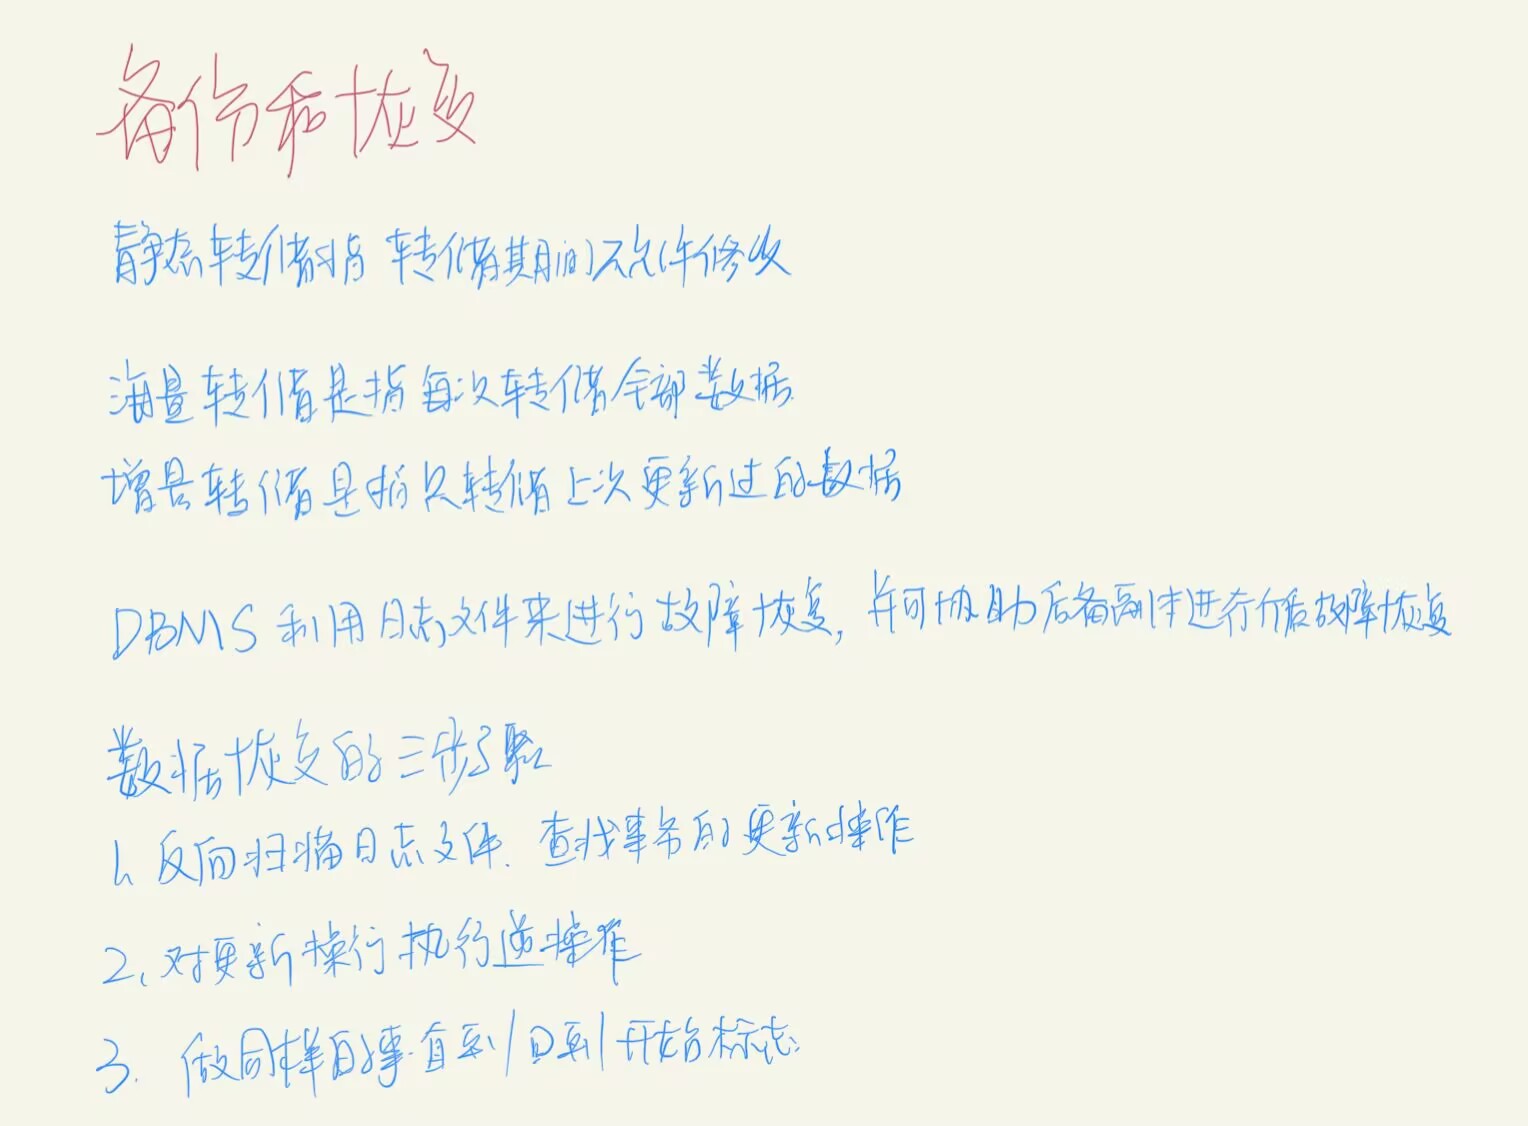 备份和恢复
静态转储时指转储期间不允许修改
海量转储是指每次转储全部数据
增量转储是指只转储上次更新过的数据
DBMS利用日志文件来进行故障恢复,并可协助后备副本进行介质故障恢复
数据恢复的三步骤
1、反向扫描日志文件.查找事务的更新操作
2、对更新操行执行逆操作
3.做同样的事.直到回到开始标志.